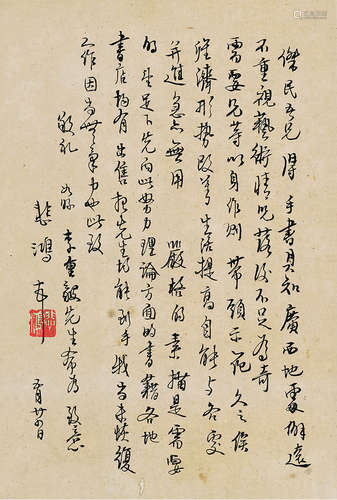 傑民吾兄 得手書具知廣西地處僻遠
不重視藝術情况落後不足為奇
需要兄等以身作则帶頭示範久之俟
經濟形势改善生活提高自能与各處
并進急亦無用 嚴格的素描是需要
的 望足下先向此努力 理論方面的書籍各地
書店均有出售 想先生均能到手 我尚未恢復
工作因尚無氣力也此致
敬礼
李重毅先生希為致意
悲鴻
月廿日